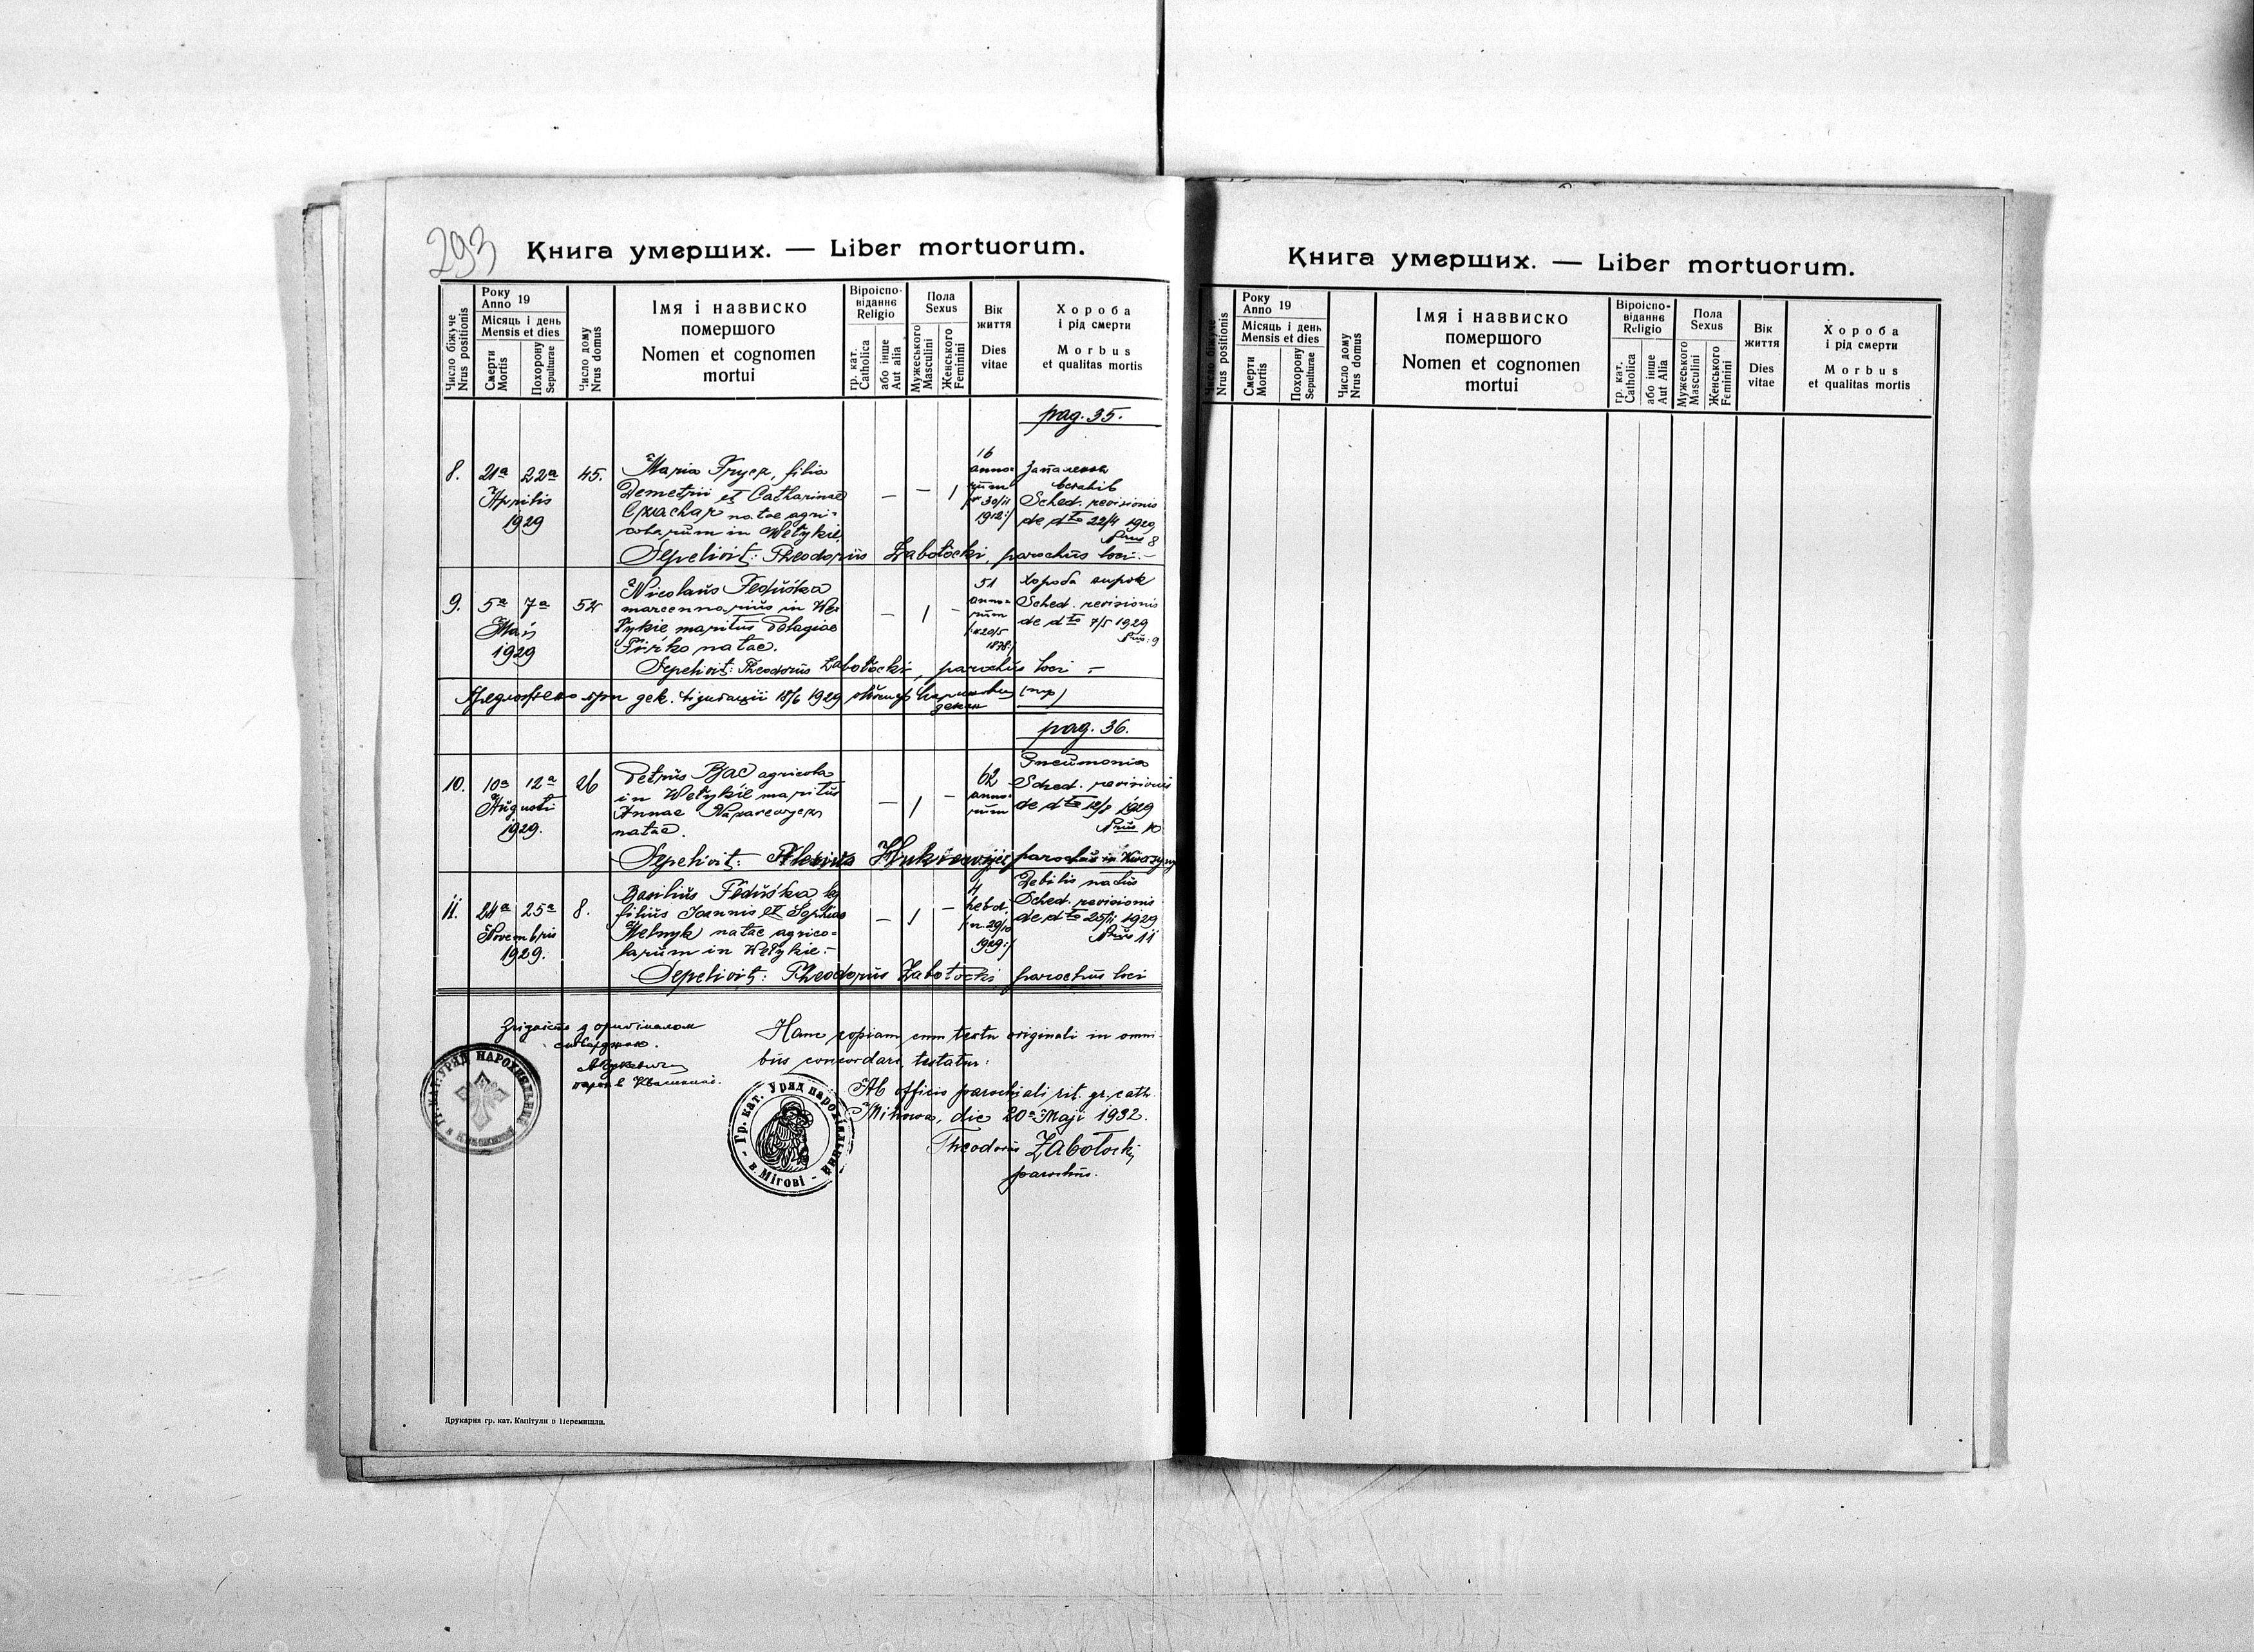 293
Книга умерших. — Liber mortuorum.
Число біжуче
Nrus positionis
Року
Anno 19
Місяць і день
Mensis et dies
Смерти
Mortis
Похорону
Sepulturae
Число дому
Nrus domus
Імя і назвиско
помершого
Nomen et cognomen
mortui
Віроіспо-
віданнє
Religio
гр. кат.
Catholica
або інше
Aut Alia
Пола
Sexus
Мужеського
Masculini
Женського
Feminini
Вік
життя
Dies
vitae
Хороба
і рід смерти
Morbus
et qualitas mortis
pag. 35.
8. 21a 22a Aprilis 1929
45.
Maria , filia
Demetrii et Catharinae
natae agri-
colarum in Wełykie
— — 1
16
anno-
rum
1912:/
Sched. revisionis
de dto 22/4 1929
Nrus 8
Sepelivit: Theodorus Zabołocki, parochus loci.—
9. 5a 7a Maii 1929
52
Nicolaus Feduśka
in We-
łykie maritus Pelagiae
natae.
— 1 —
51
anno-
rum
/n 20/5
1878:/
Хороба
Sched. revisionis
de dto 7/5 1929
Nrus: 9
Sepelivit: Theodorus Zabołocki, parochus loci —
дек. 18/6 1929
декан
pag. 36.
10. 10a 12a Augusti 1929.
26
Petrus Bac agricola
in Wełykie maritus
Annae
natae.
— 1 —
62
anno-
rum
Pneumonia
Sched. revisionis
de dto 12/8 1929
Nrus 10
Sepelivit: parochus in
11. 24a 25a Novembris 1929.
8.
Basilius Feduśka leg.
filius Joannis et Sophiae
Melnyk natae agrico-
larum in Wełykie.—
— 1 —
4
hebd.
/n 29/10
1929:/
Debilis natus
Sched. revisionis
de dto 25/11 1929
Nrus 11
Sepelivit: Theodorus Zabołocki parochus loci
Згідність з оригіналом
Hanc copiam cum textu originali in omni-
bus concordare testatur:
Ab officio parochiali rit. gr. cath.
Mihowa, die 20a Maji 1932.
Theodorus Zabołocki
parochus.
Гр. кат. Уряд парохіяльний
в Мігові
Друкарня гр. кат. Капітули в Перемишли.
Книга умерших. — Liber mortuorum.
Число біжуче
Nrus positionis
Року
Anno 19
Місяць і день
Mensis et dies
Смерти
Mortis
Похорону
Sepulturae
Число дому
Nrus domus
Імя і назвиско
помершого
Nomen et cognomen
mortui
Віроіспо-
віданнє
Religio
гр. кат.
Catholica
або інше
Aut Alia
Пола
Sexus
Мужеського
Masculini
Женського
Feminini
Вік
життя
Dies
vitae
Хороба
і рід смерти
Morbus
et qualitas mortis